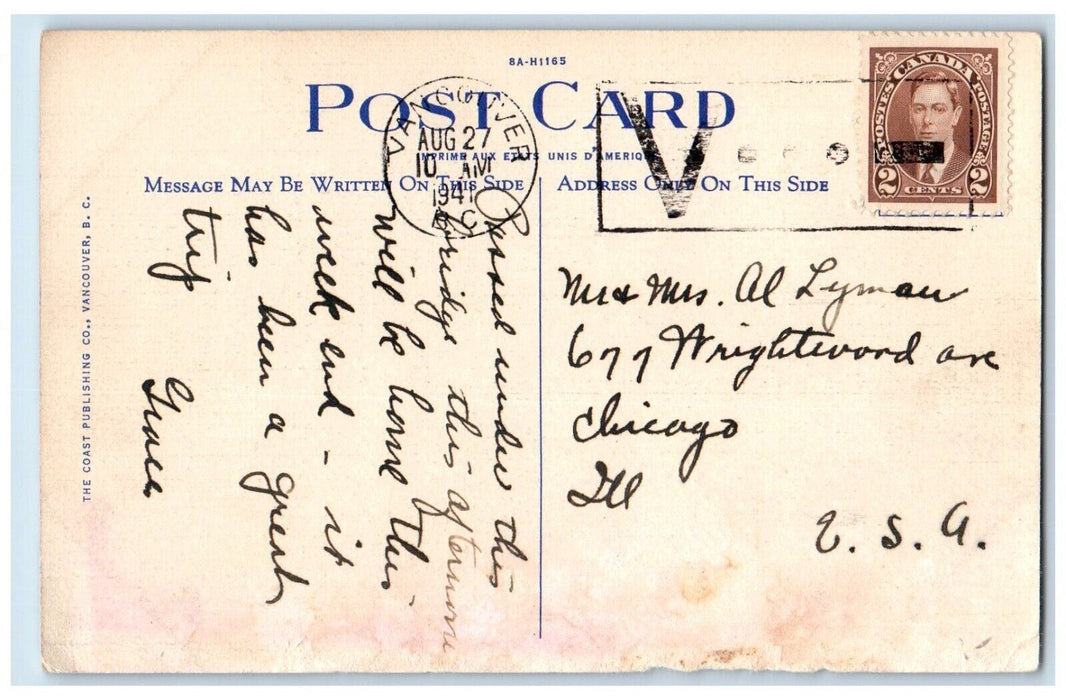 8A-H1165
POST CARD
IMPRIME AUX ETATS UNIS D'AMERIQUE
MESSAGE MAY BE WRITTEN ON THIS SIDE
ADDRESS ONLY ON THIS SIDE
VANCOUVER
AUG 27
10 AM
1941
B C
V
POSTES CANADA POSTAGE
2 CENTS 2
Passed under this
bridge this afternoon
will be home this
week end - it
has been a great
trip
Grace
Mr & Mrs. Al Lyman
677 Wrightwood ave
Chicago
Ill
U. S. A.
THE COAST PUBLISHING CO., VANCOUVER, B. C.